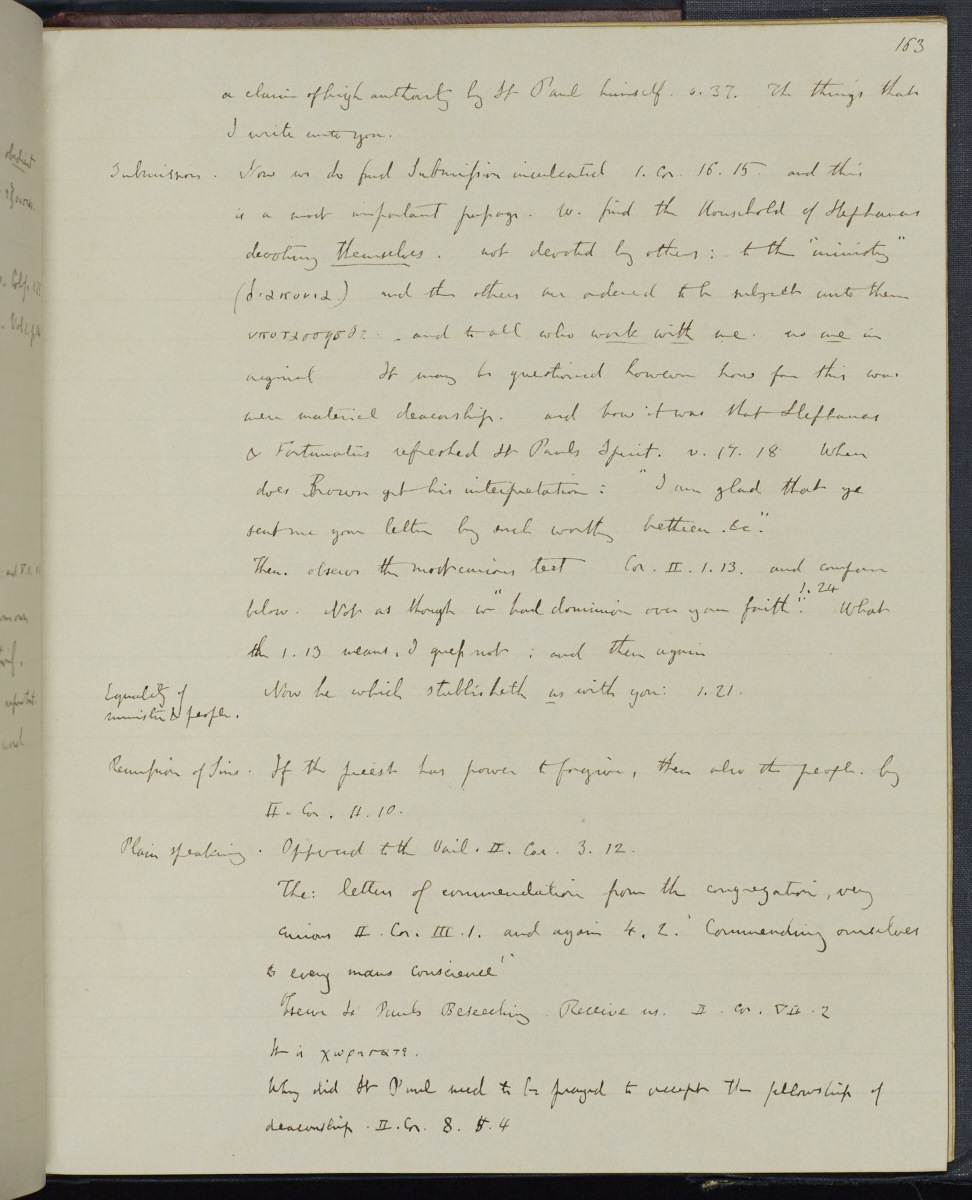 163
a claim of high authority by St Paul himself. v. 37. The things that
I write unto you.
Submission. Now we do find Submission inculcated 1. Cor. 16. 15. and this
is a most important passage. We find the Household of Stephanas
devoting themselves. not devoted by others: to the "ministry"
(διακονια) and the others are ordered to be subject unto them
υποτασσησθε. and to all who work with me. no me in
original It may be questioned however how far this was
mere material deaconship. and how it was that Stephanas
& Fortunatus refreshed St Pauls Spirit. v. 17. 18 When
does Brown get his interpretation: "I am glad that ye
sent me your letter by such worthy brethren. &c".
Then. observe the most curious text Cor. II. 1. 13. and compare
below. Not as though we "had dominion over your faith". 1. 24 What
the 1. 13 means, I guess not: and then again
Now he which stablisheth us with you: 1. 21.
Equality of
minister & people.
Remission of Sins. If the priest has power to forgive, then also the people. by
II. Cor. 11. 10.
Plain speaking. Opposed to the Vail. II. Cor. 3. 12.
The: letters of commendation from the congregation, very
curious II. Cor. III. 1. and again 4. 2. "Commending ourselves
to every mans conscience"
St Pauls Beseeching. Receive us. II. Cor. VII. 2
It is χωρησατε.
Why did St Paul need to be prayed to accept the fellowship of
deaconship. II. Cor. 8. 4
obedient